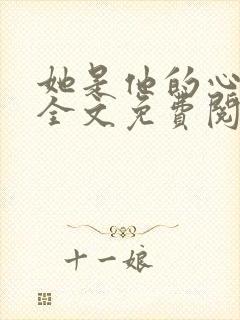 她是他的心
全文免費閱
十一娘